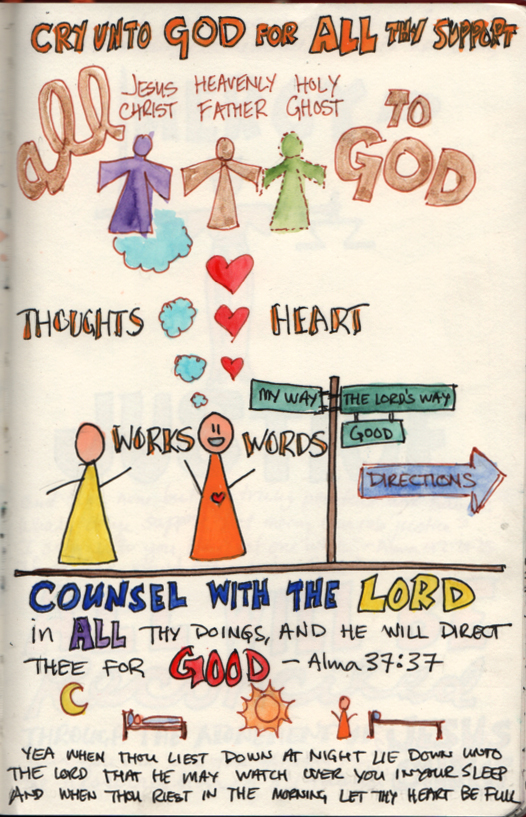 CRY UNTO GOD FOR ALL THY SUPPORT
all
JESUS CHRIST
HEAVENLY FATHER
HOLY GHOST
TO GOD
THOUGHTS
HEART
MY WAY
THE LORD'S WAY
GOOD
WORKS
WORDS
DIRECTIONS
COUNSEL WITH THE LORD
in ALL THY DOINGS, AND HE WILL DIRECT
THEE FOR GOOD - Alma 37:37
YEA WHEN THOU LIEST DOWN AT NIGHT LIE DOWN UNTO
THE LORD THAT HE MAY WATCH OVER YOU IN YOUR SLEEP
AND WHEN THOU RIEST IN THE MORNING LET THY HEART BE FULL